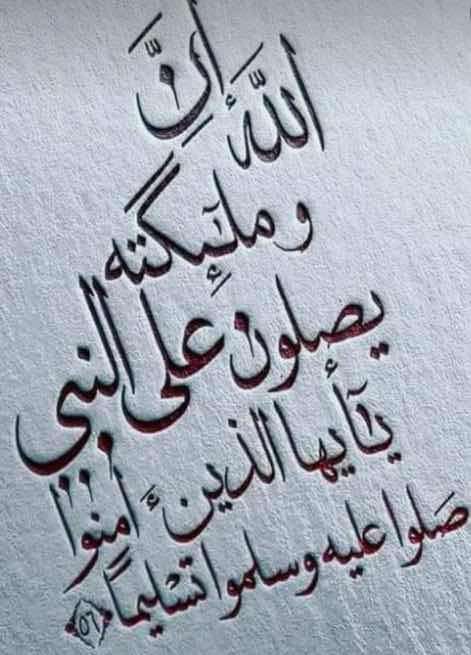 إنَّ
اللَّهَ
وملٰئكته
يصلون على النبي
يٰٓأيها الذين ءامنوا
صلوا عليه وسلموا تسْليمًا ٥٦